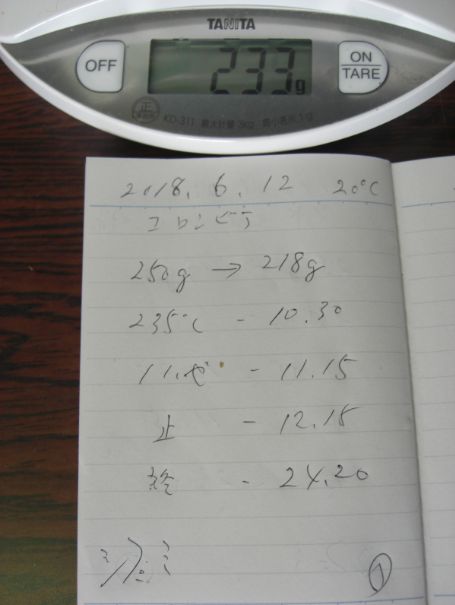 TANITA
OFF
233g
ON
TARE
正
KD-311 最大計量 3kg 最小表示 1g
2018. 6. 12 20℃
コロンビア
250g → 218g
235℃ - 10.30
- 11.15
止 - 12.15
終 - 24.20
①